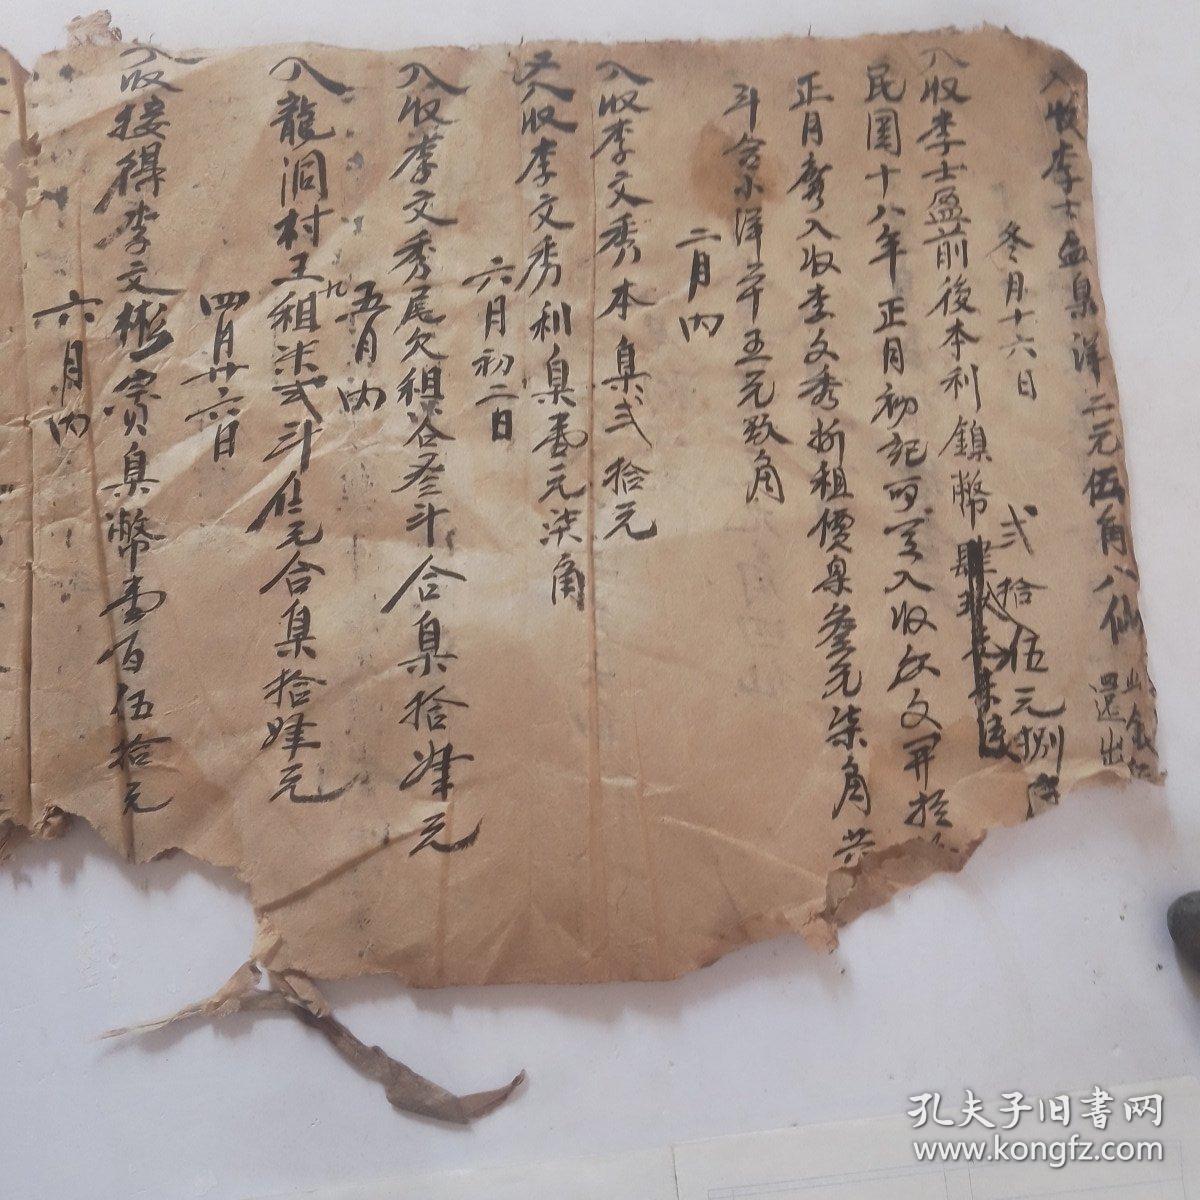 入收李士盈臬洋二元伍角八仙 還出
冬月十六日 弍拾伍元捌
入收李士盈前後本利鎮幣
民國十八年正月初 入收
正月 入收李文秀折租價臬叁元柒角共
斗合小洋 五元 角
二月内
入收李文秀本臬弍拾元
又入收李文秀利臬壹元柒角
六月初二日
入收李文秀尾欠租谷叁斗合臬拾肆元
五月内
入龍洞村王租米弍斗 合臬拾肆元
四月廿六日
入收接得李文彬 臬幣壹百伍拾元
六月内
孔夫子旧書网
www.kongfz.com